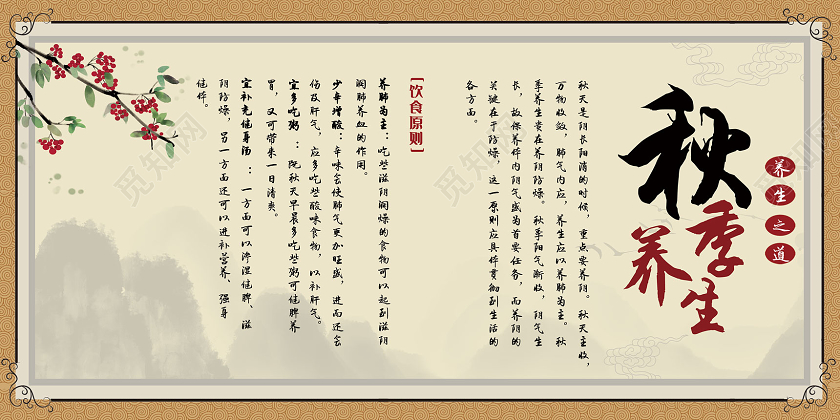 秋季养生
养生之道
秋天是阴长阳清的时候，重点要养阴。秋天主收，
万物收敛，肺气内应，养生应以养肺为主。秋
季养生贵在养阴防燥。秋季阳气渐收，阴气生
长，故保养体内阴气盛为首要任务，而养阴的
关键在于防燥，这一原则应具体贯彻到生活的
各方面。
[饮食原则]
养肺为主：吃些滋阴润燥的食物可以起到滋阴
润肺养血的作用。
少辛增酸：辛味会使肺气更加旺盛，进而还会
伤及肝气，应多吃些酸味食物，以补肝气。
宜多吃粥：既秋天早晨多吃些粥可健脾养
胃，又可带来一日清爽。
宜补充健身汤：一方面可以渗湿健脾、滋
阴防燥，另一方面还可以进补营养、强身
健体。
觅知网